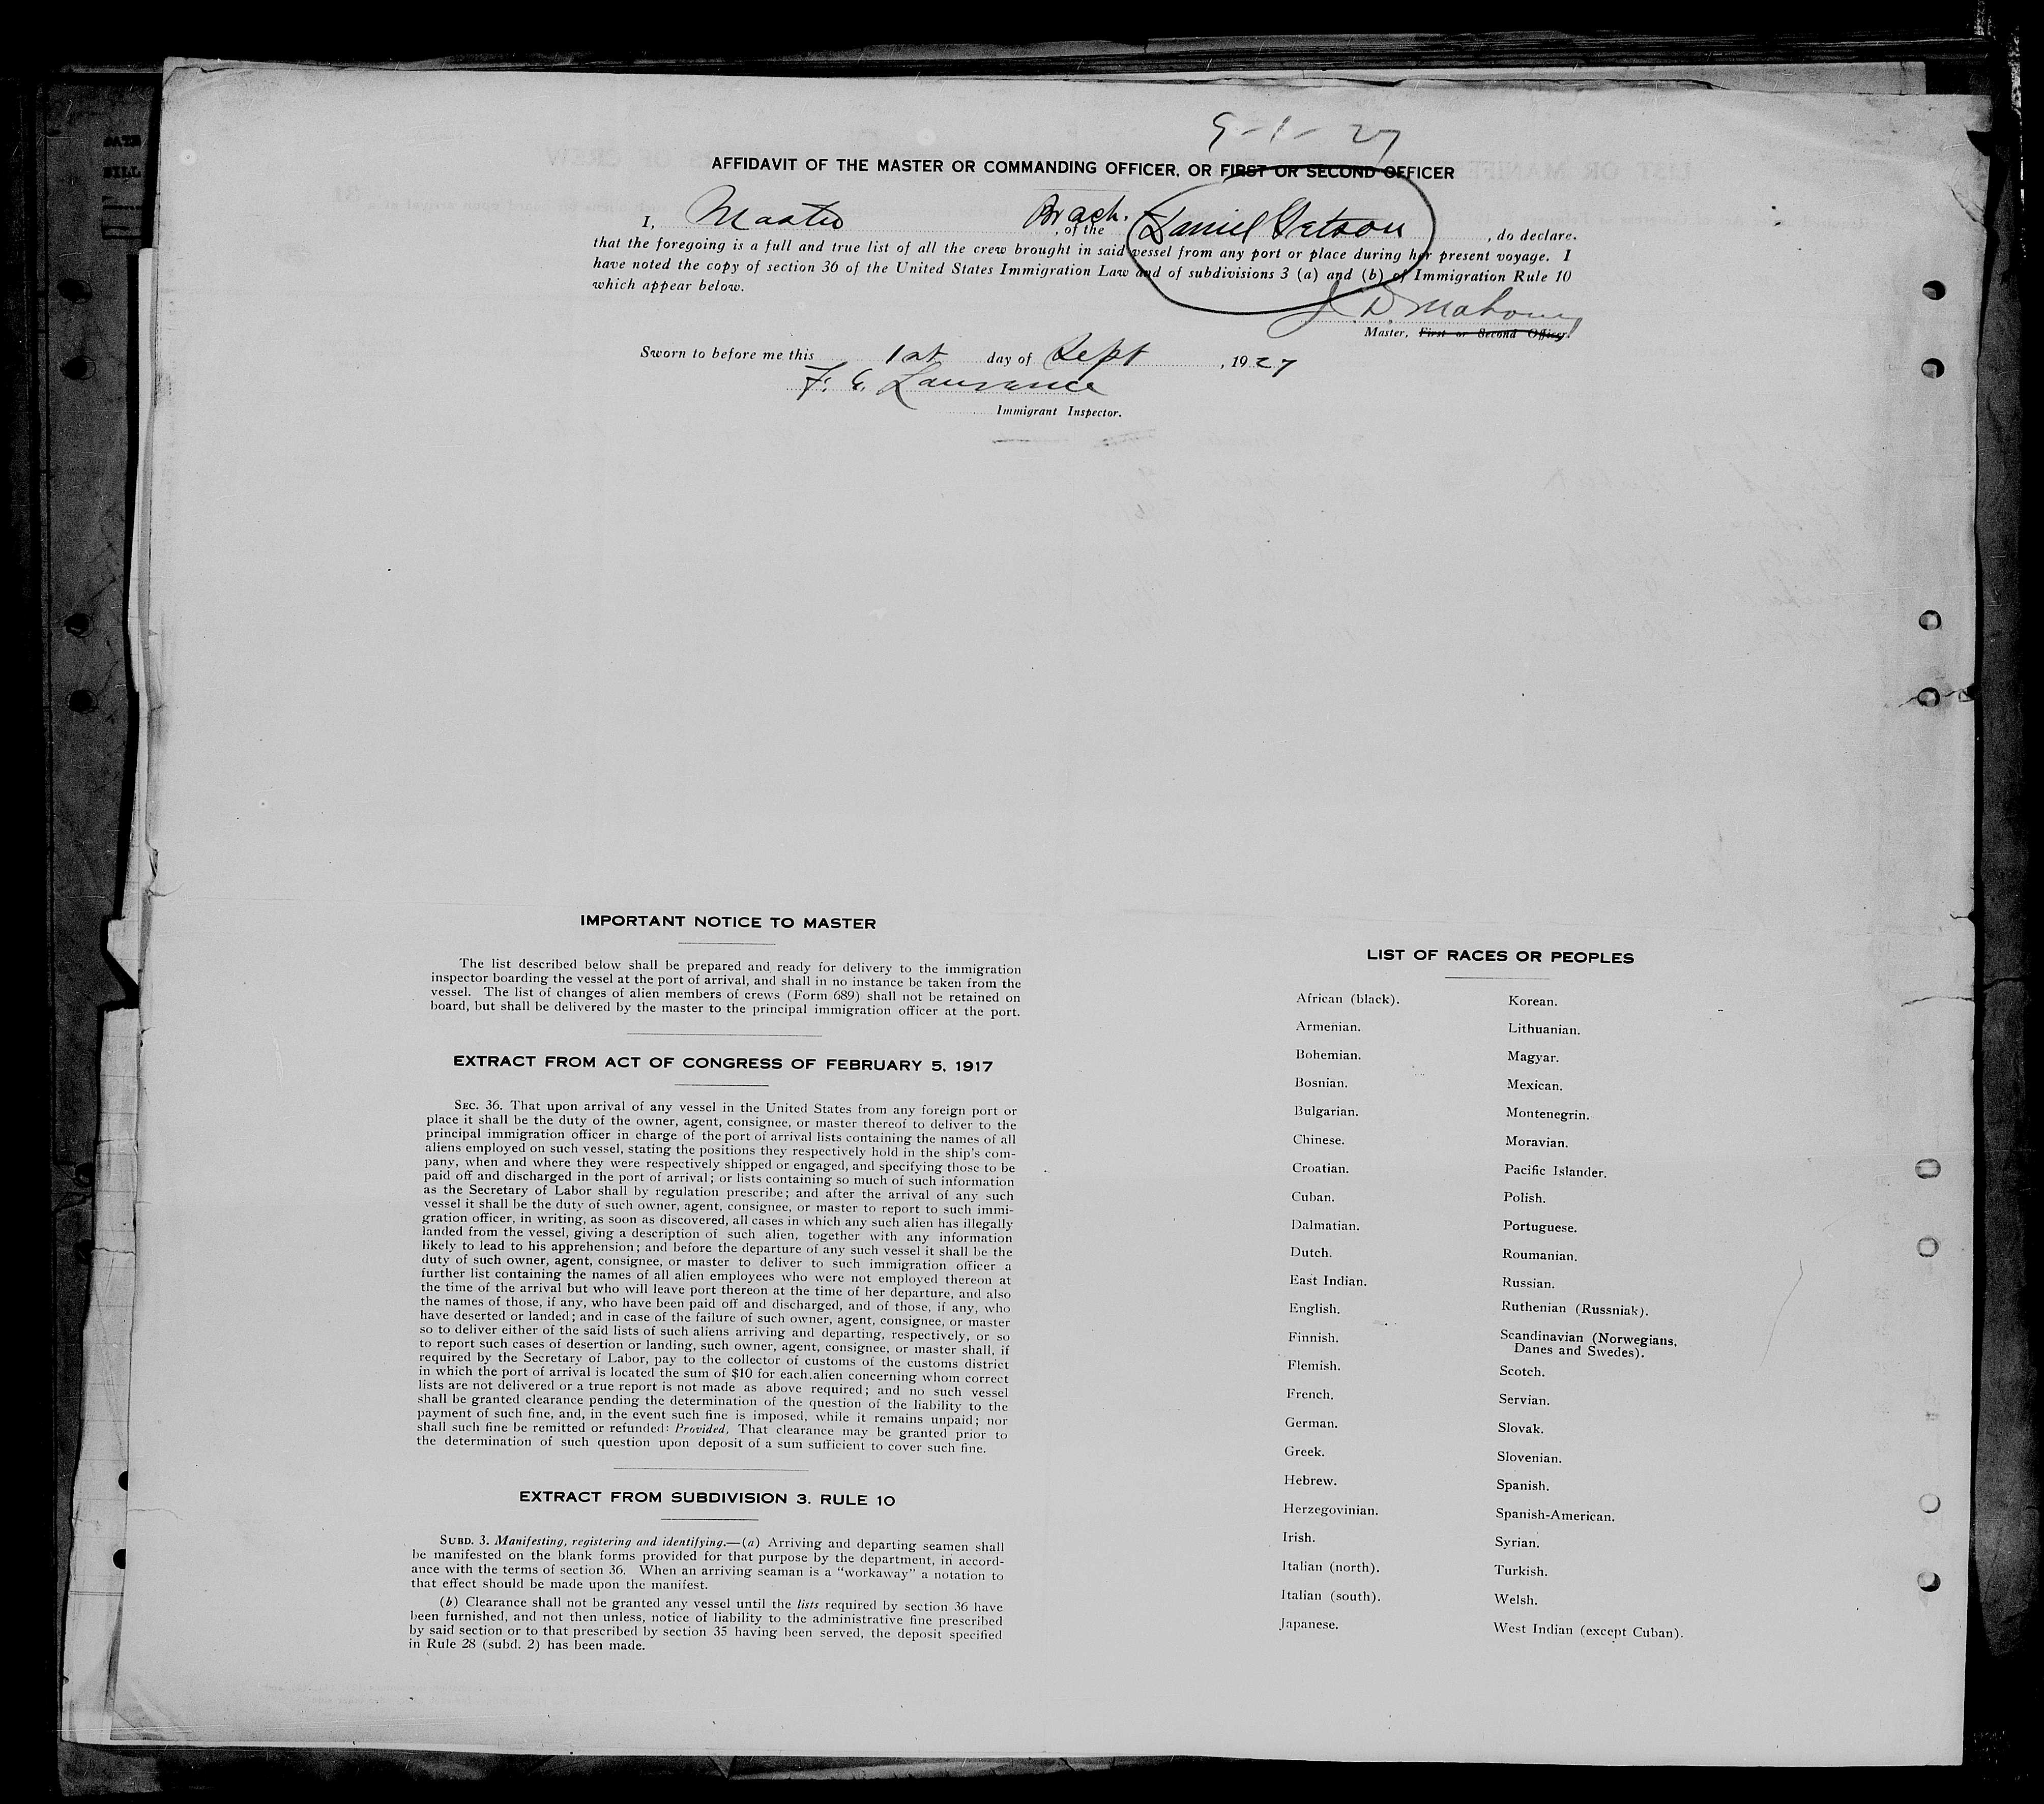 9-1-27
AFFIDAVIT OF THE MASTER OR COMMANDING OFFICER, OR FIRST OR SECOND OFFICER
I, Master of the Daniel Getson, do declare.
that the foregoing is a full and true list of all the crew brought in said vessel from any port or place during her present voyage. I
have noted the copy of section 36 of the United States Immigration Law and of subdivisions 3 (a) and (b) of Immigration Rule 10
which appear below.
J. D. Mahoney
Master, First or Second Officer.
Sworn to before me this 1st day of Sept, 1927
F. E. Lawrence
Immigrant Inspector.
IMPORTANT NOTICE TO MASTER
The list described below shall be prepared and ready for delivery to the immigration
inspector boarding the vessel at the port of arrival, and shall in no instance be taken from the
vessel. The list of changes of alien members of crews (Form 689) shall not be retained on
board, but shall be delivered by the master to the principal immigration officer at the port.
EXTRACT FROM ACT OF CONGRESS OF FEBRUARY 5, 1917
SEC. 36. That upon arrival of any vessel in the United States from any foreign port or
place it shall be the duty of the owner, agent, consignee, or master thereof to deliver to the
principal immigration officer in charge of the port of arrival lists containing the names of all
aliens employed on such vessel, stating the positions they respectively hold in the ship's com-
pany, when and where they were respectively shipped or engaged, and specifying those to be
paid off and discharged in the port of arrival; or lists containing so much of such information
as the Secretary of Labor shall by regulation prescribe; and after the arrival of any such
vessel it shall be the duty of such owner, agent, consignee, or master to report to such immi-
gration officer, in writing, as soon as discovered, all cases in which any such alien has illegally
landed from the vessel, giving a description of such alien, together with any information
likely to lead to his apprehension; and before the departure of any such vessel it shall be the
duty of such owner, agent, consignee, or master to deliver to such immigration officer a
further list containing the names of all alien employees who were not employed thereon at
the time of the arrival but who will leave port thereon at the time of her departure, and also
the names of those, if any, who have been paid off and discharged, and of those, if any, who
have deserted or landed; and in case of the failure of such owner, agent, consignee, or master
so to deliver either of the said lists of such aliens arriving and departing, respectively, or so
to report such cases of desertion or landing, such owner, agent, consignee, or master shall, if
required by the Secretary of Labor, pay to the collector of customs of the customs district
in which the port of arrival is located the sum of $10 for each alien concerning whom correct
lists are not delivered or a true report is not made as above required; and no such vessel
shall be granted clearance pending the determination of the question of the liability to the
payment of such fine, and, in the event such fine is imposed, while it remains unpaid; nor
shall such fine be remitted or refunded: Provided, That clearance may be granted prior to
the determination of such question upon deposit of a sum sufficient to cover such fine.
EXTRACT FROM SUBDIVISION 3, RULE 10
SUBD. 3. Manifesting, registering and identifying.—(a) Arriving and departing seamen shall
be manifested on the blank forms provided for that purpose by the department, in accord-
ance with the terms of section 36. When an arriving seaman is a "workaway" a notation to
that effect should be made upon the manifest.
(b) Clearance shall not be granted any vessel until the lists required by section 36 have
been furnished, and not then unless, notice of liability to the administrative fine prescribed
by said section or to that prescribed by section 35 having been served, the deposit specified
in Rule 28 (subd. 2) has been made.
LIST OF RACES OR PEOPLES
African (black).
Armenian.
Bohemian.
Bosnian.
Bulgarian.
Chinese.
Croatian.
Cuban.
Dalmatian.
Dutch.
East Indian.
English.
Finnish.
Flemish.
French.
German.
Greek.
Hebrew.
Herzegovinian.
Irish.
Italian (north).
Italian (south).
Japanese.
Korean.
Lithuanian.
Magyar.
Mexican.
Montenegrin.
Moravian.
Pacific Islander.
Polish.
Portuguese.
Roumanian.
Russian.
Ruthenian (Russniak).
Scandinavian (Norwegians,
Danes and Swedes).
Scotch.
Servian.
Slovak.
Slovenian.
Spanish.
Spanish-American.
Syrian.
Turkish.
Welsh.
West Indian (except Cuban).